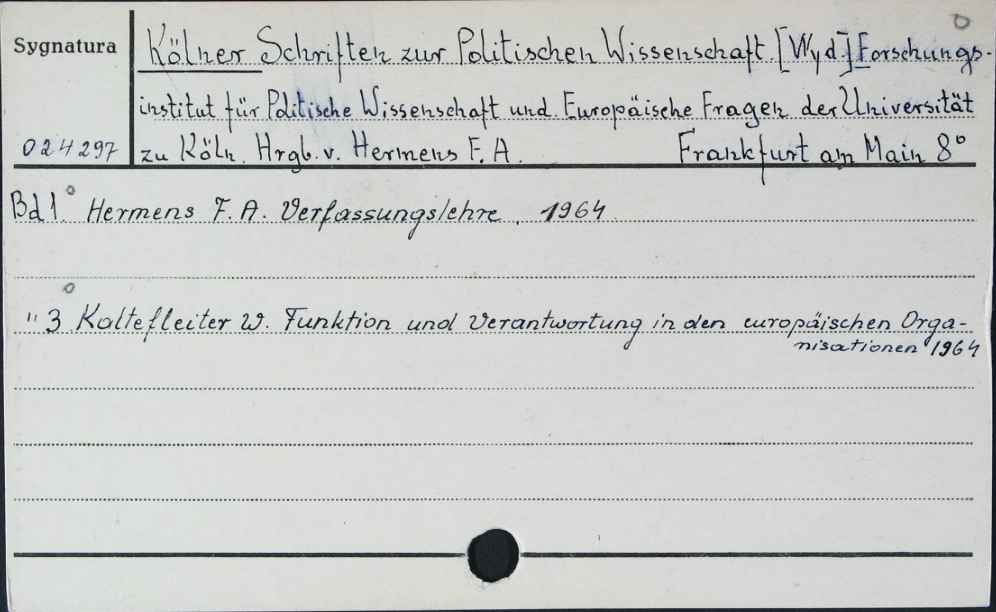 Sygnatura
024297
Kölner Schriften zur Politischen Wissenschaft. [Wyd.] Forschungs-
institut für Politische Wissenschaft und Europäische Fragen der Universität
zu Köln. Hrgb. v. Hermens F. A. Frankfurt am Main 8°
Bd 1. Hermens F. A. Verfassungslehre. 1964
" 3 Kaltefleiter W. Funktion und Verantwortung in den europäischen Orga-
nisationen 1964